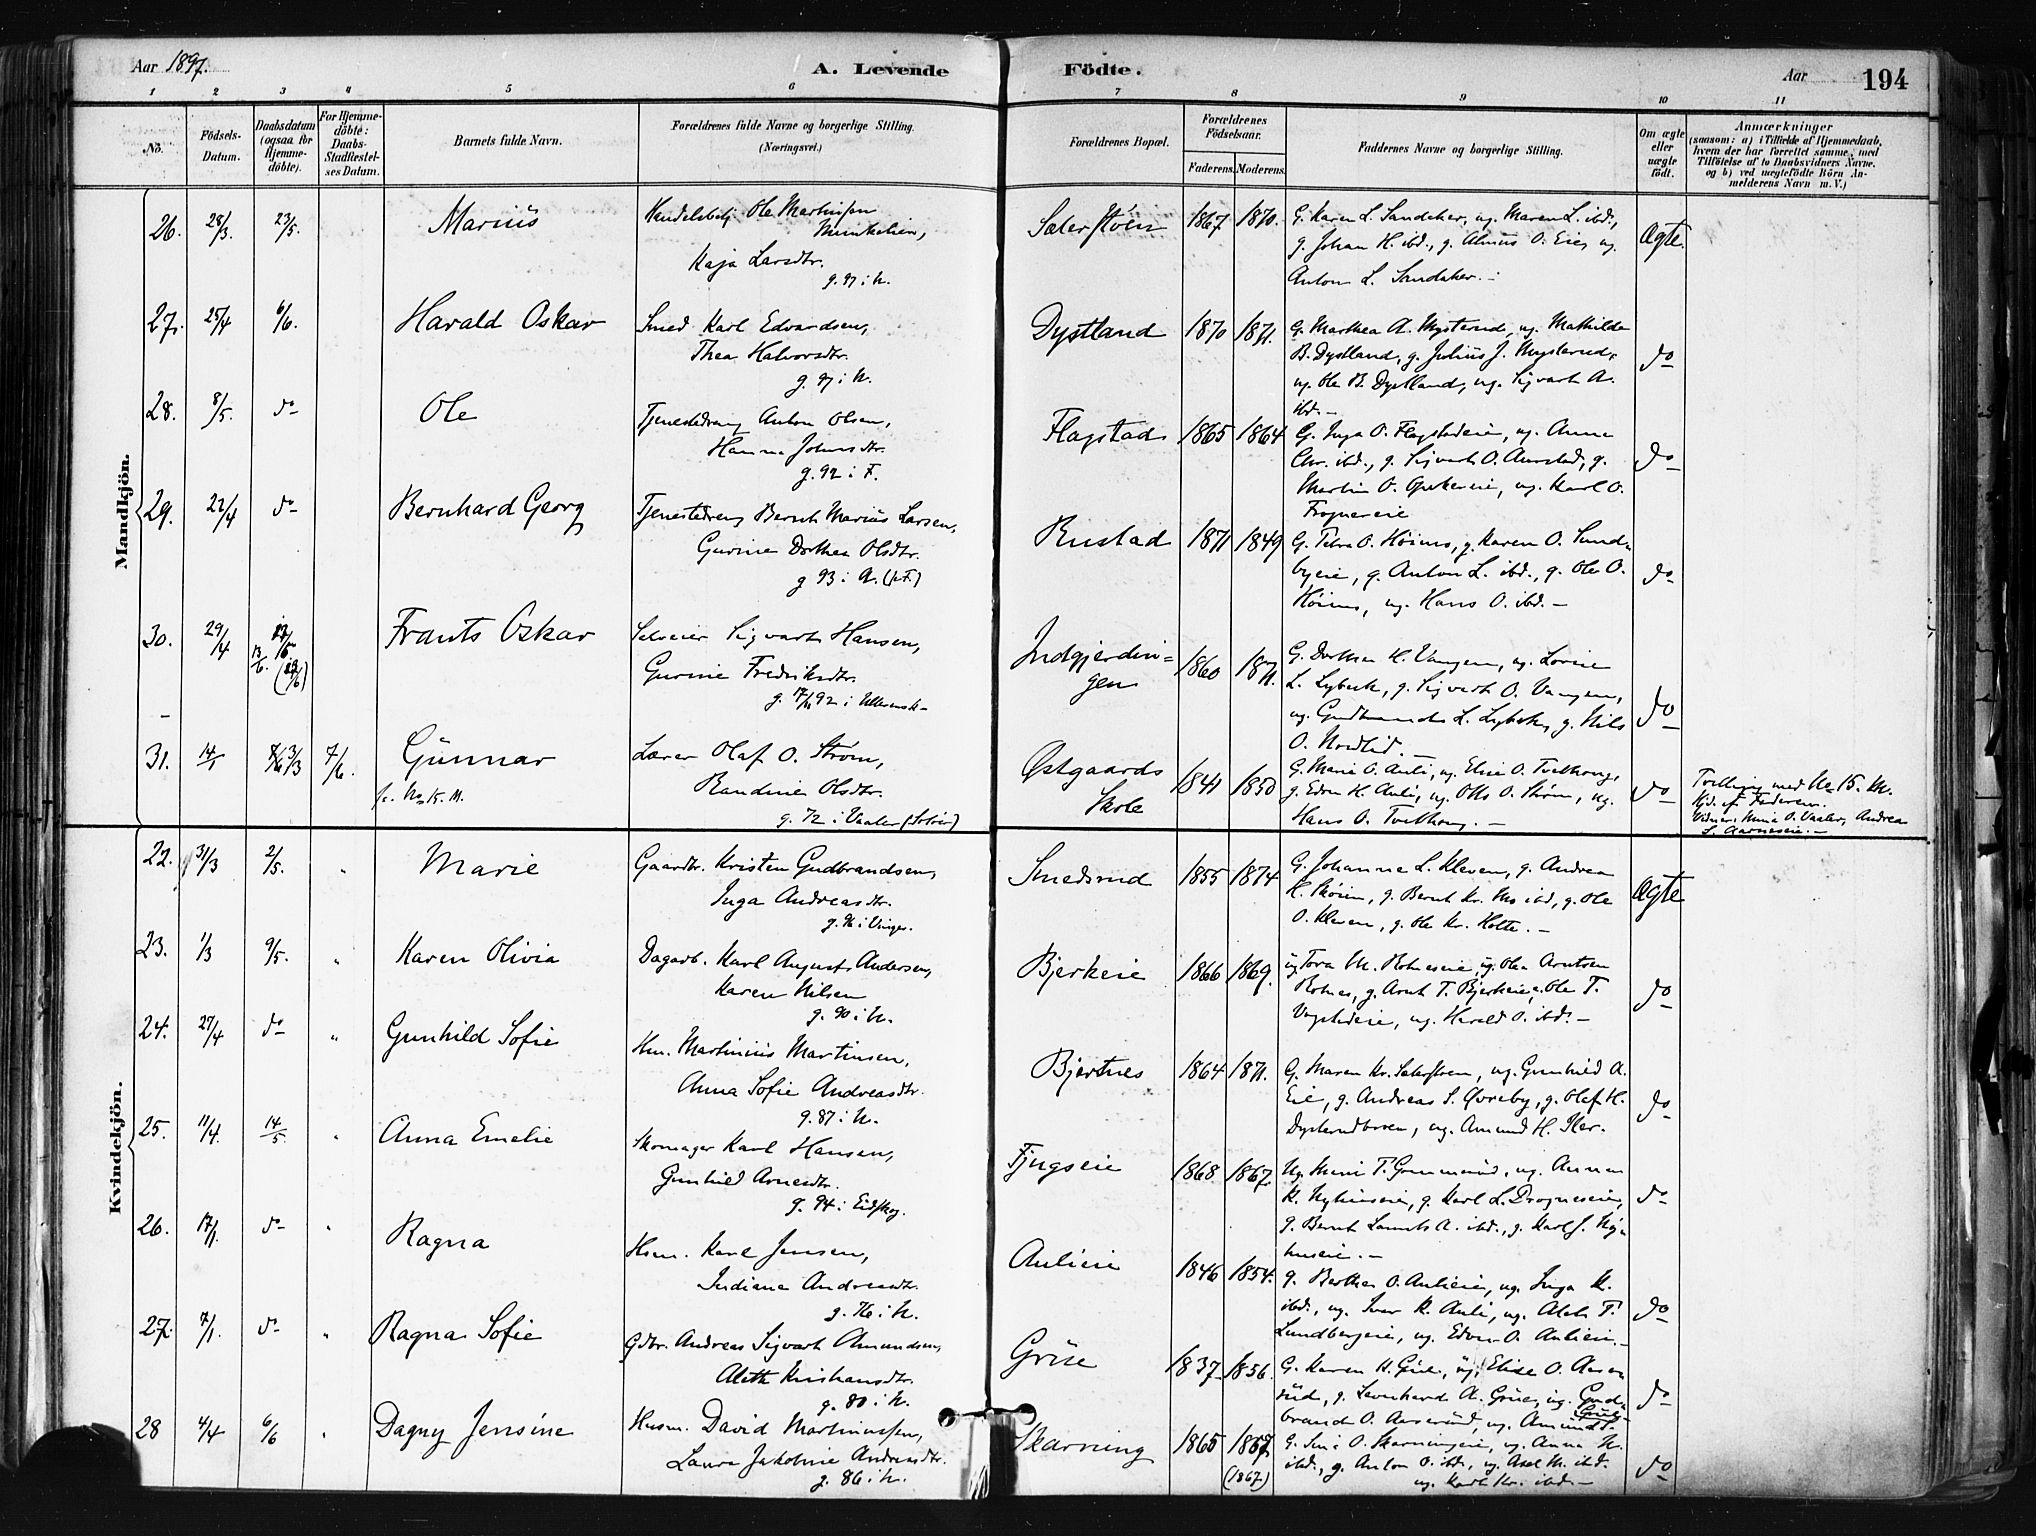 Aar 1897.
A. Levende Födte.
Aar 194
1 2 3 4 5 6 7 8 9 10 11
No.
Födsels-Datum.
Daabsdatum (ogsaa for Hjemme-döbte).
For Hjemme-döbte: Daabs-Stadfæstel-ses Datum.
Barnets fulde Navn.
Forældrenes fulde Navne og borgerlige Stilling. (Næringsvei.)
Forældrenes Bopæl.
Forældrenes Födselsaar.
Faderens. Moderens.
Faddernes Navne og borgerlige Stilling.
Om ægte eller uægte födt.
Anmærkninger
(saasom: a) i Tilfælde af Hjemmedaab, hvem der har forrettet samme, med Tilföielse af to Daabsvidners Navne, og b) ved uægtefödte Börn An-melderens Navn m. V.)
Mandkjön.
26. 28/3 23/5. Marius
Ole Martinsen
Kaja Larsdtr.
g. 97 i N.
Sæterstøen 1867 1870.
G. Karen L. Sandaker, ug. Maren L. ibd.,
g. Johan H. ibd., g. Almus O. Eie, ug.
Anton L. Sandaker. -
Ægte.
27. 25/4 6/6. Harald Oskar
Smed Karl Edvardsen,
Thea Halvorsdtr.
g. 97 i N.
Dystland 1870 1871.
G. Marthea A. Mysterud, ug. Mathilde
B. Dystland, g. Julius J. Mysterud,
ug. Ole B. Dystland, ug. Sigvart A.
ibd. -
do
28. 8/5. do Ole
Tjenestedreng Anton Olsen,
Hanna Johnsdtr.
g. 92 i F.
Flagstad 1865 1864
G. Inga O. Flagstadeie, ug. Anna
Chr. ibd., g. Sigvart O. Aurstad, g.
Martin O. ug. Karl O.
Frognereie
do
29. 22/4 do Bernhard Georg
Tjenestedreng Bernt Marius Larsen,
Gurine Dorthea Olsdtr.
g. 93 i A. (i F.)
Rustad 1871 1849
G. Petra O. Høines, g. Karen O. Sund-
byeie, g. Anton L. ibd., g. Ole O.
Høines, ug. Hans O. ibd. -
do
30. 29/4 13/6. Frants Oskar
Selveier Sigvart Hansen,
Gurine Fredriksdtr.
92 i Ullensak-
Indgjerdin=
gen 1860 1871.
G. Dorthea H. Vangen, ug. Lovise
L. Lybeck, g. Sigvart O. Vangen,
ug. Gudbrand L. Lybeck, g. Nils
O. Nordlid. -
do
31. 14/1 7/6 3/3 7/6. Gunnar
Lærer Olaf O. Strøm,
Randine Olsdtr.
g. 72 i Vaaler (Solør)
Østgaards
Skole 1841 1850
G. Marie O. Auli, ug. Elise O. Tvethoug,
g. Edvin H. Auli, ug. Otto O. Strøm, ug.
Hans O. Tvethoug. -
do
Tvilling med No 15. M.
Hjd. af Faderen.
Vidner: O. Vaaler, Andrea
L. Aarneseie. -
Kvindekjön.
22. 31/3 2/5. Marie
Gaardbr. Kristen Gudbrandsen,
Inga Andreasdtr.
i Vinger.
Smedsrud 1855 1874
G. Johanne L. Kleven, g. Andrea
H. Skøien, g. Bernt Kr. ibd, g. Ole
O. Kleven, g. Ole Kr. Holte. -
Ægte
23. 1/3 9/5. Karen Olivia
Dagarb. Karl August Andersen,
Karen Nilsen
g. 90 i N.
Bjerkeie 1866 1869.
ug Tora M. ug. Olea Arntsen
g. Arnt T. Bjerkeie, Ole T.
ug. Harald O. ibd. -
do
24. 27/4 do Gunhild Sofie
Hm. Martinius Martinsen,
Anna Sofie Andreasdtr.
g. 87 i N.
Bjertnes 1864 1871.
G. Maren Kr. Sæterstøen, ug. Gunhild A.
Eie, g. Andreas S. Øvreby, g. Olaf H.
ug. Amund H. Iler.
do
25. 11/4. 14/5 Anna Emelie
Skomager Karl Hansen,
Gunhild Arnesdtr.
g. 94 i Eidskog.
Fjugseie 1868 1867.
Ug. T. ug. Anna
K. Nyhuseie, g. Karl L. Drogneseie,
g. Bernt A. ibd., g. Karl J. Ny-
huseie. -
do
26. 17/1. do Ragna
Hsm. Karl Jensen,
Indiane Andreasdtr.
g. 76 i N.
Aulieie 1846 1854.
g. Berthea O. Aulieie, ug. Inga K.
ibd., ug. Iver K. Auli, ug. T.
Lundbergeie, ug. Edvin O. Aulieie. -
do
27. 7/1. do Ragna Sofie
Gdbr. Andreas Sigvart Amundsen,
Aleth Kristiansdtr.
g. 80 i N.
Grüe 1837 1856.
G. Karen H. Grüe, ug. Elise O. Aase-
rüd, g. Leonhard A. Grüe, ug. Gud-
brand O. Aaserüd, ug. Amund Grüe.
do
28 4/4 6/6 Dagny Jensine
Husm. David Martinussen,
Laura Jakobine Andreasdtr.
g. 86 i N.
Skarning 1865 1867
(1867)
G. O. Skarningeie, ug. Anna N.
ibd., g. Anton O. ibd., ug. Axel M. ibd.
ug. Karl Kr. ibd. -
do